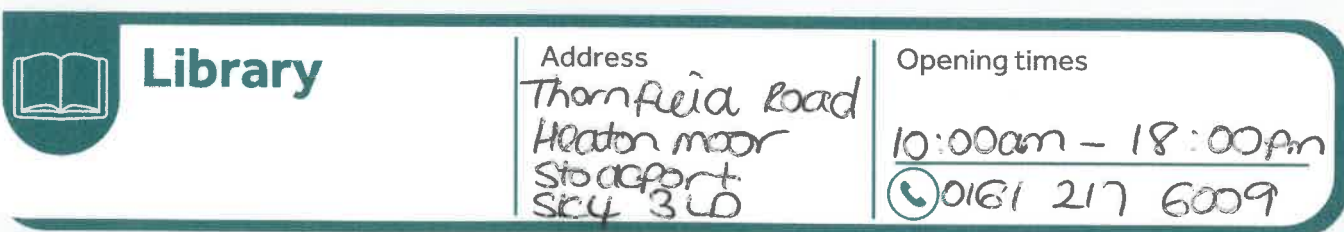 Library
Address
Thornfield Road
Heaton moor
Stockport
SK4 3LD
Opening times
10:00am - 18:00pm
0161 217 6009